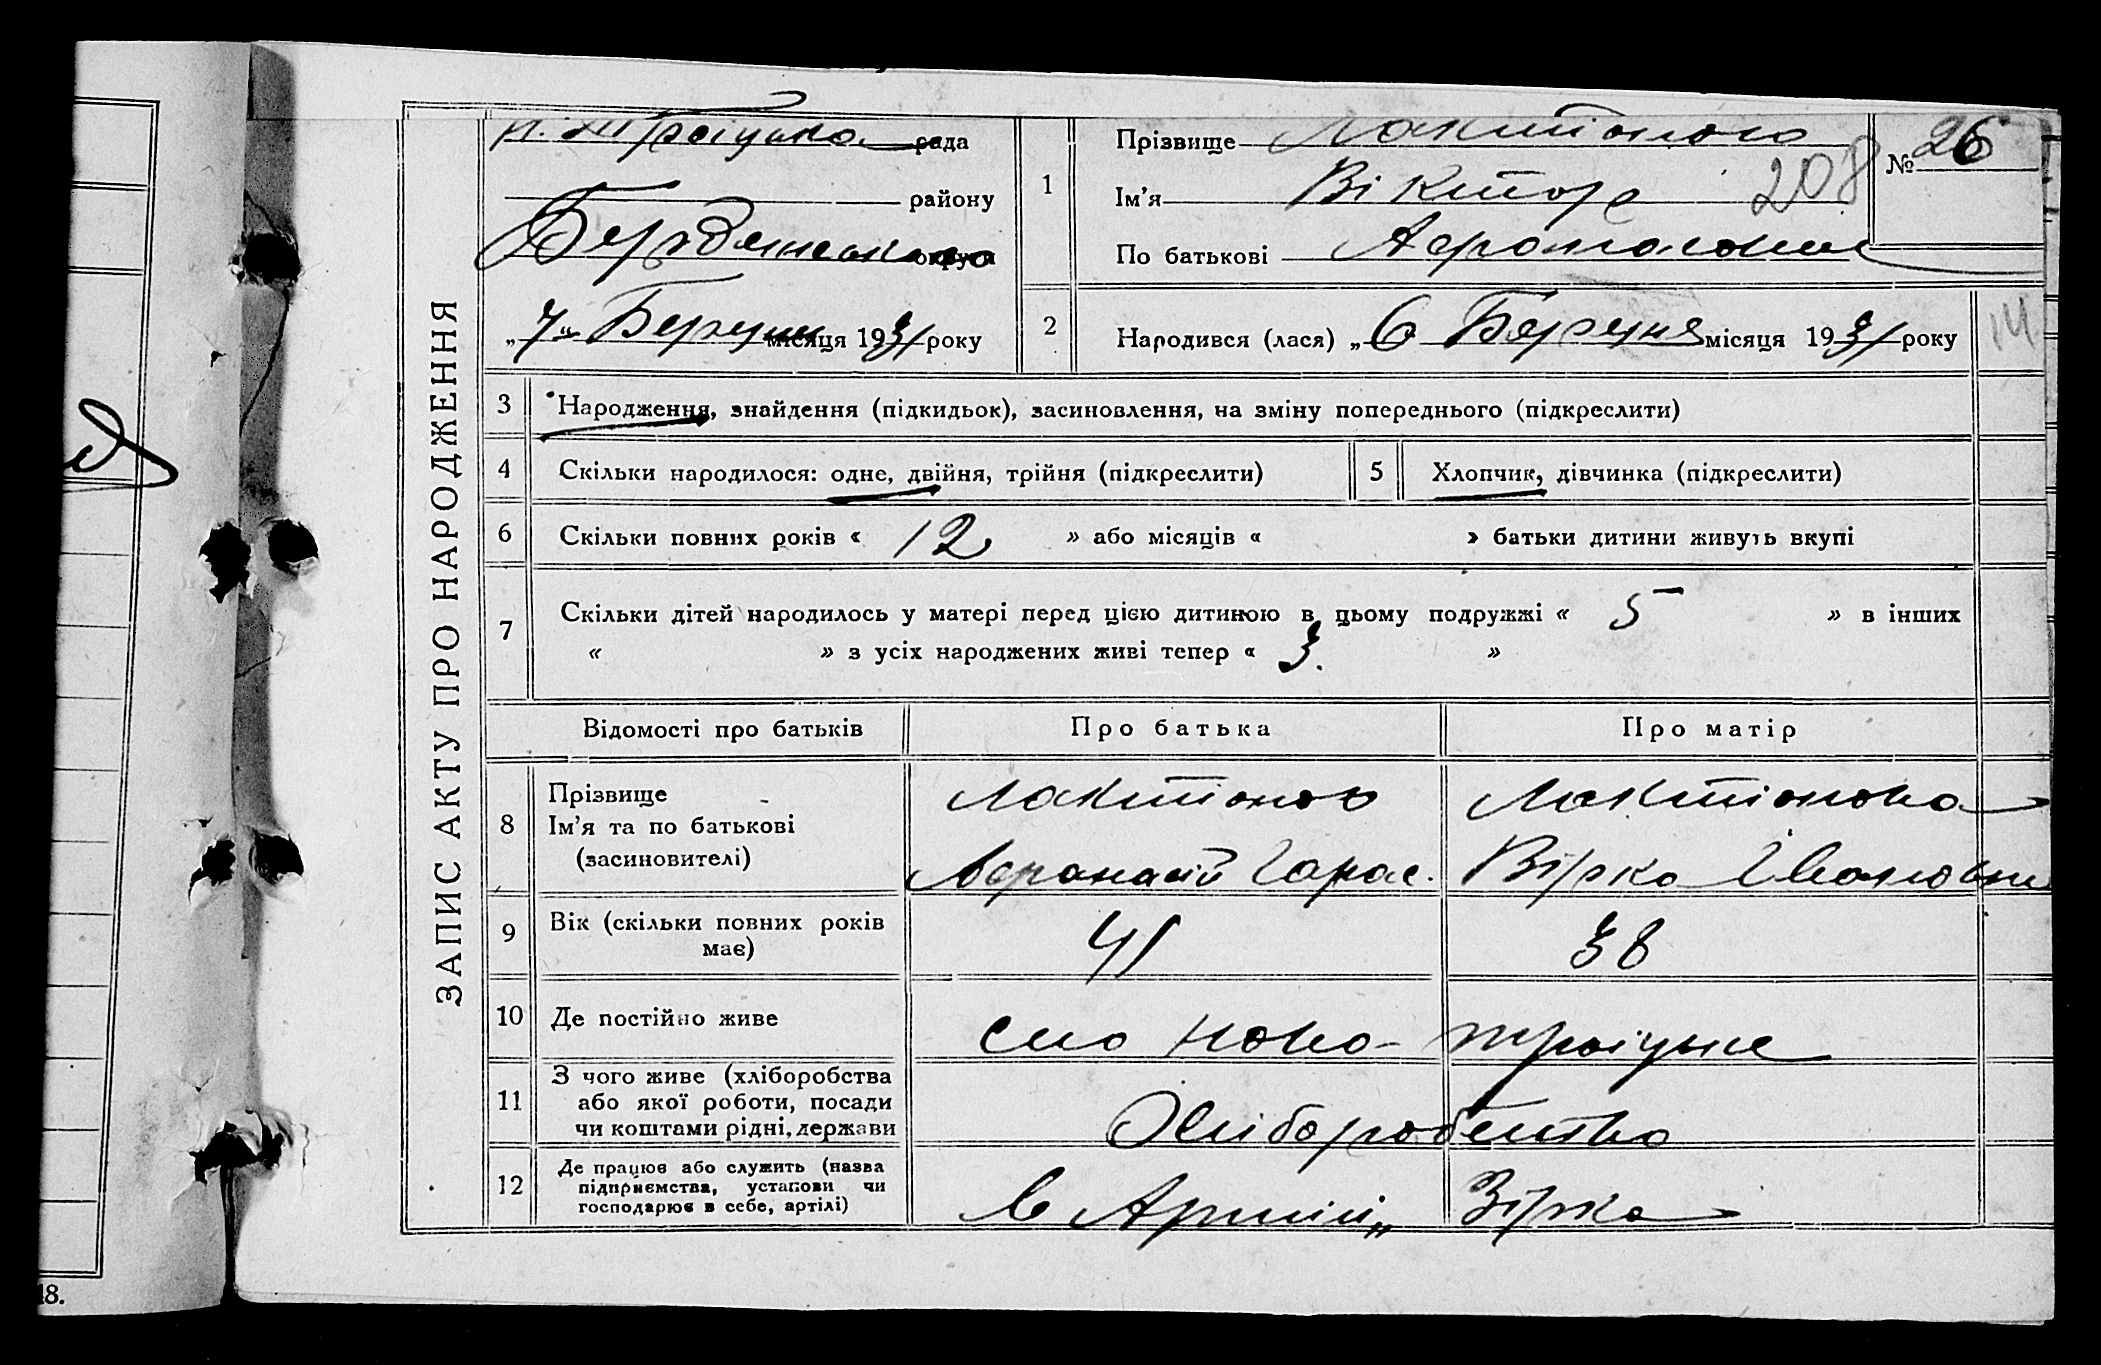 ЗАПИС АКТУ ПРО НАРОДЖЕННЯ
Н. Троіцька рада
району
Бердянсько округи
„7“ Березня місяця 1931 року
1
Прізвище Лактіонова
Ім'я Віктор
По батькові Афонасович
№ 26
208
2
Народився (лася) „6 Березня місяця 1931 року
14
3 Народження, знайдення (підкидьок), засиновлення, на зміну попереднього (підкреслити)
4 Скільки народилося: одне, двійня, трійня (підкреслити)
5 Хлопчик, дівчинка (підкреслити)
6 Скільки повних років « 12 » або місяців « » батьки дитини живуть вкупі
7 Скільки дітей народилось у матері перед цією дитиною в цьому подружжі « 5 » в інших
« » з усіх народжених живі тепер « 3. »
Відомості про батьків Про батька Про матір
8 Прізвище
Ім'я та по батькові
(засиновителі)
Лактіонов
Афанасій Гарас.
Лактіонова
Вірка Івановна
9 Вік (скільки повних років
має)
41 38
10 Де постійно живе село Ново-Троіцьке
11 З чого живе (хліборобства
або якої роботи, посади
чи коштами рідні, держави
Хліборобство
12 Де працює або служить (назва
підприємства, установи чи
господарює в себе, артілі)
в Артілі „Зірка
18.